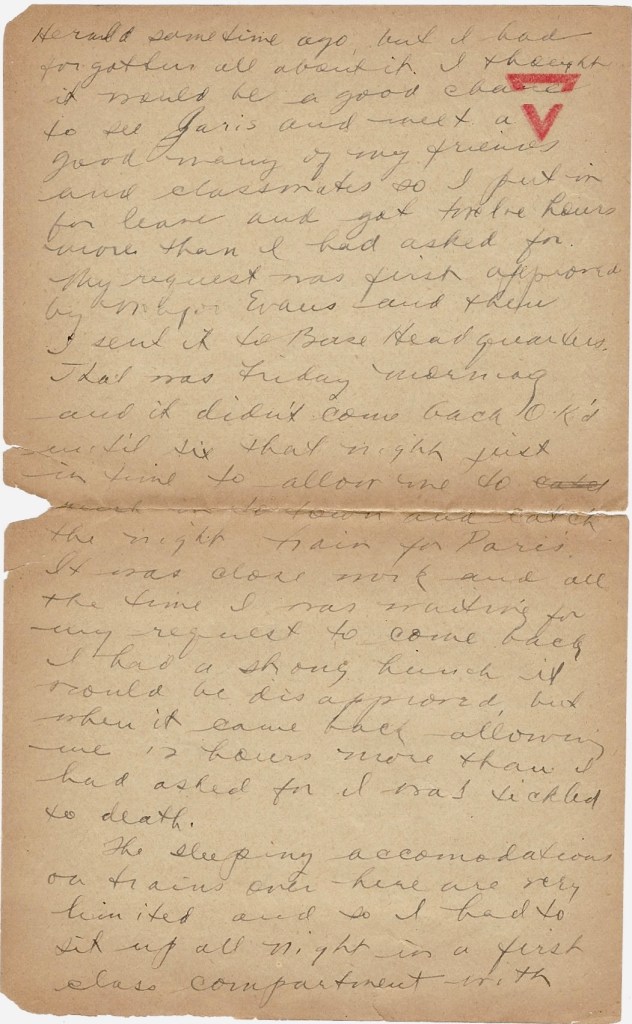 Herald sometime ago, but I had
forgotten all about it. I thought
it would be a good chance
to see Paris and meet a
good many of my friends
and classmates so I put in
for leave and got twelve hours
more than I had asked for.
My request was first approved
by Major Evans and then
I sent it to Base Headquarters.
That was Friday morning
and it didn't come back O.K'd
until six that night just
in time to allow me to catch
into town and catch
the night train for Paris.
It was close work and all
the time I was waiting for
my request to come back
I had a strong hunch it
would be disapproved, but
when it came back allowing
me 12 hours more than I
had asked for I was tickled
to death.
The sleeping accomodations
on trains over here are very
limited and so I had to
sit up all night in a first
class compartment with